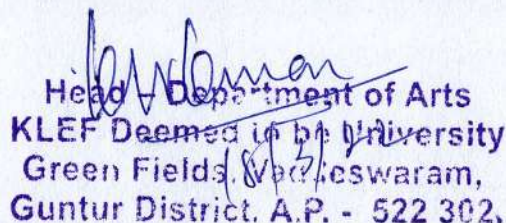 Head - Department of Arts
KLEF Deemed to be University
Green Fields, Vaddeswaram,
Guntur District. A.P. - 522 302.